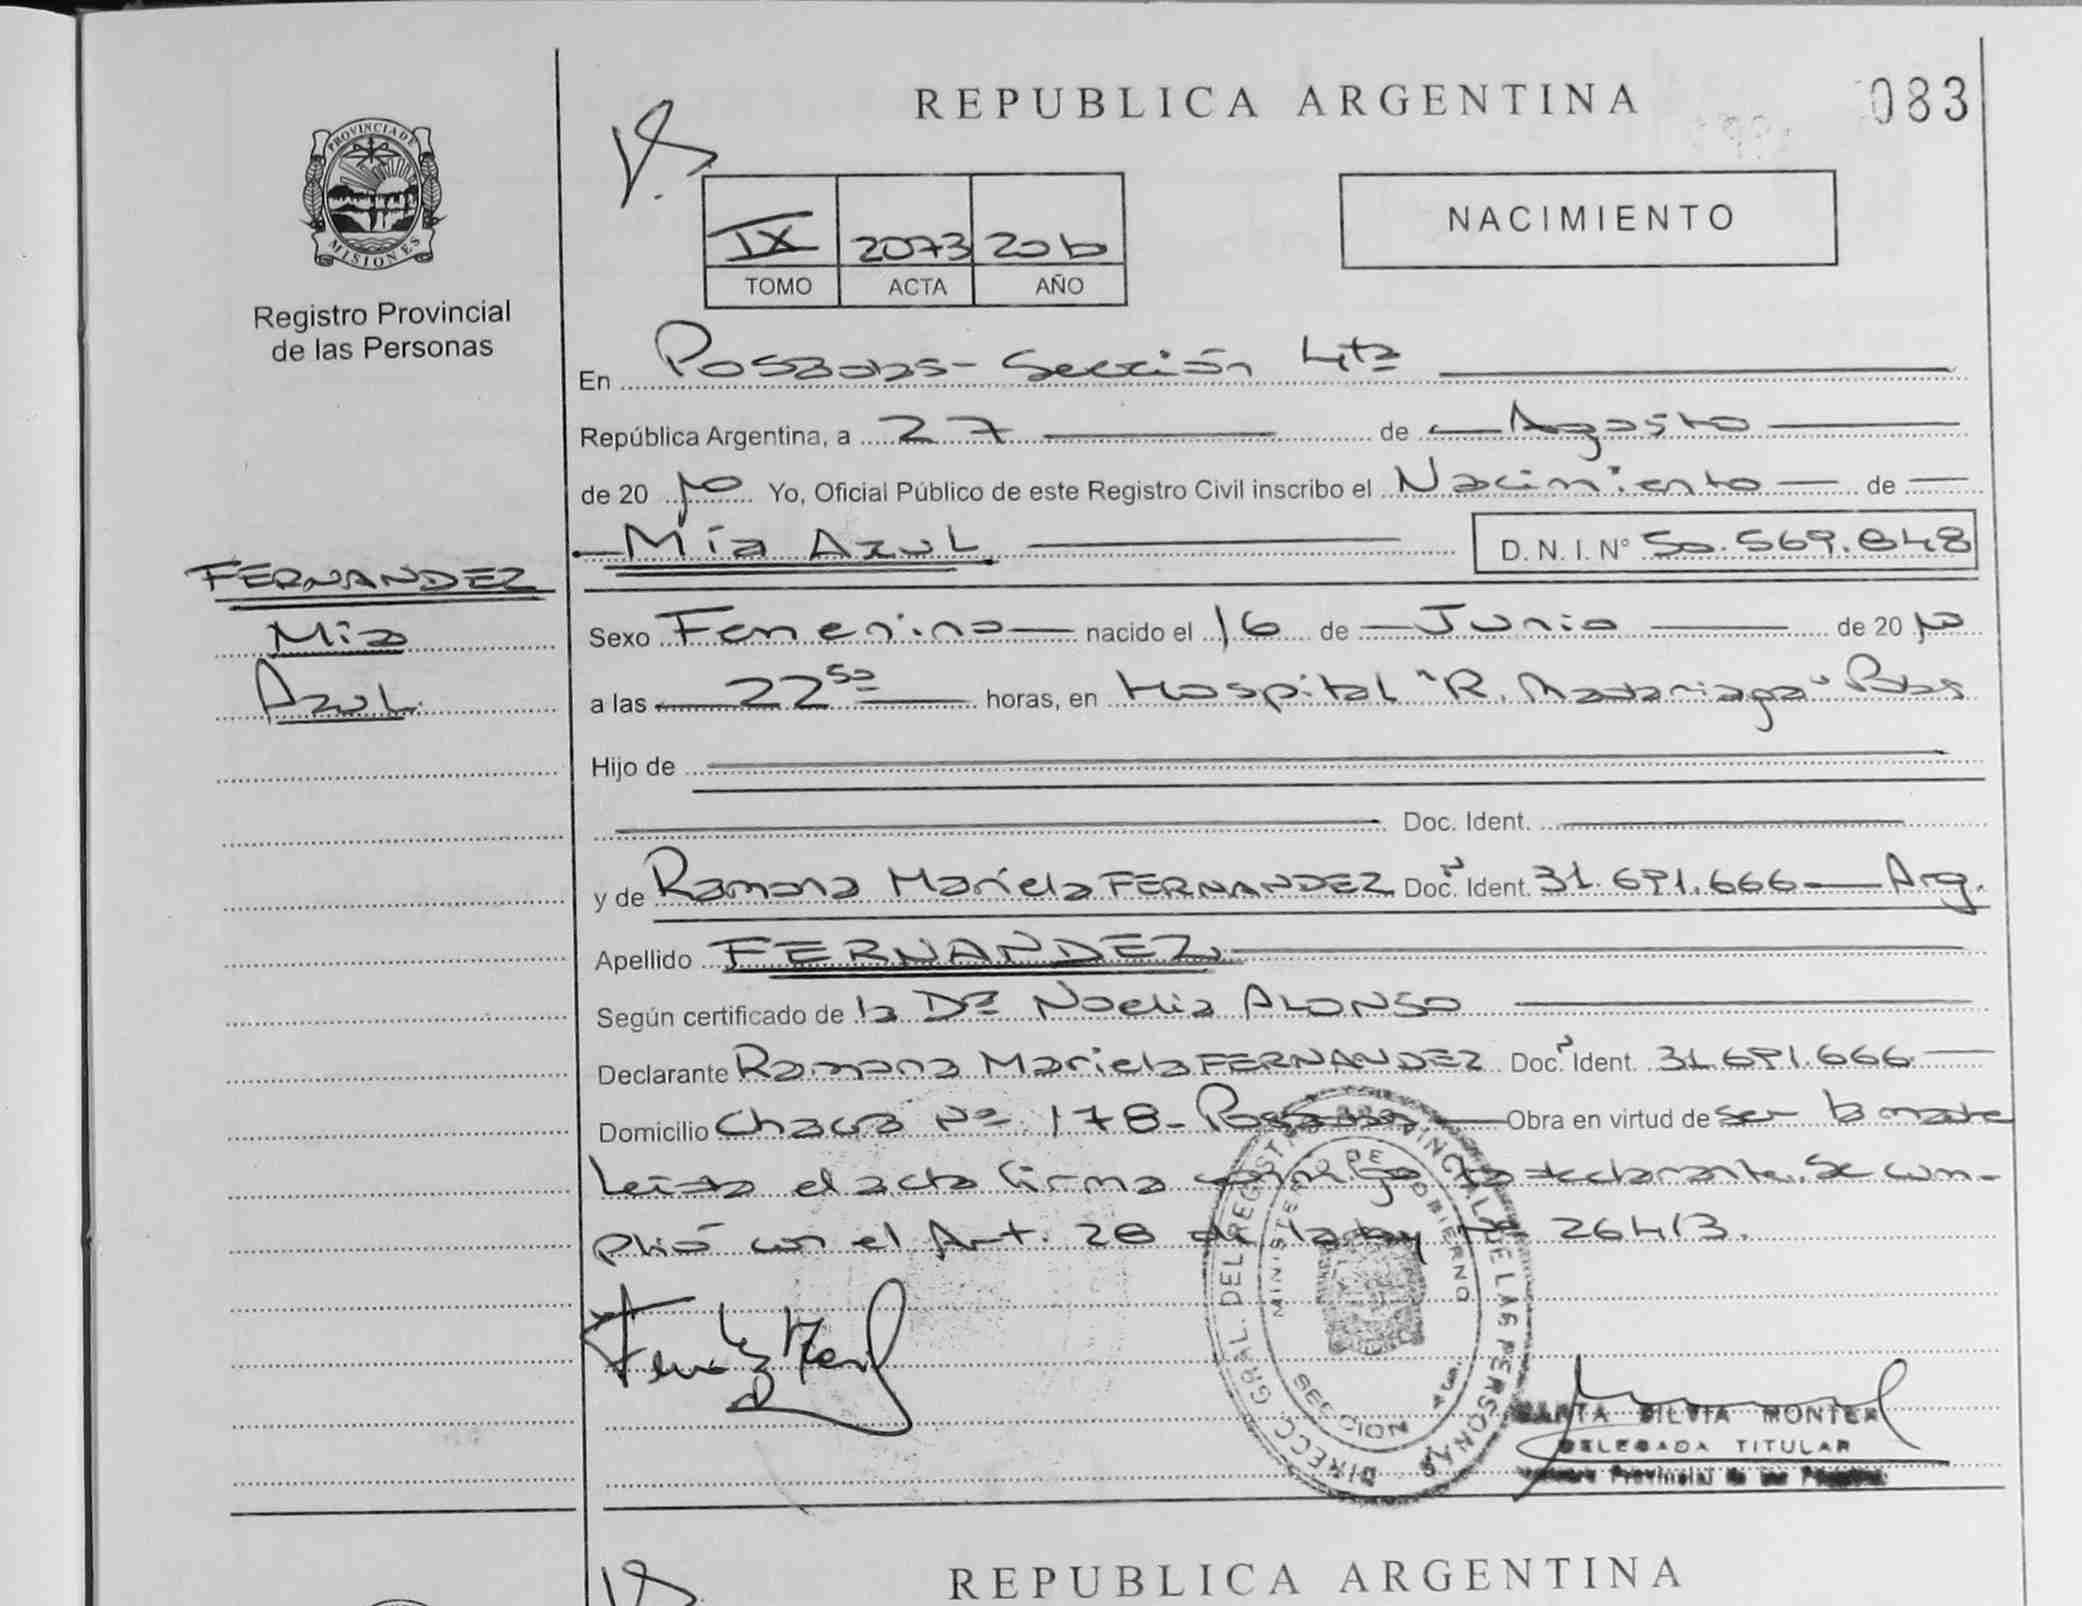 REPUBLICA ARGENTINA
083
PROVINCIA DE
MISIONES
Registro Provincial
de las Personas
NACIMIENTO
IX 2073 2010
TOMO ACTA AÑO
En Posadas - Sección 4ta
República Argentina, a 27 de Agosto
de 20 10 Yo, Oficial Público de este Registro Civil inscribo el Nacimiento de
Mía Azul D. N. I. N° 50.569.848
FERNANDEZ
Mía
Azul
Sexo Femenino nacido el 16 de Junio de 20 10
a las 22 50 horas, en Hospital "R. Madariaga" Pdas
Hijo de
Doc. Ident.
y de Ramona Mariela FERNANDEZ Doc. Ident. 31.691.666 Arg.
Apellido FERNANDEZ
Según certificado de la Dra Noelia ALONSO
Declarante Ramona Mariela FERNANDEZ Doc. Ident. 31.691.666
Domicilio Chacra Nº 178 - Posadas Obra en virtud de ser la madre
Leída el acta firma conmigo la declarante. Se cum-
plió con el Art. 28 de la ley Nº 26413.
DIRECC. GRAL. DEL REGISTRO PROVINCIAL DE LAS PERSONAS
MINISTERIO DE GOBIERNO
SECCION 4ta.
SILVIA MONTIEL
DELEGADA TITULAR
Provincial de las Personas
REPUBLICA ARGENTINA